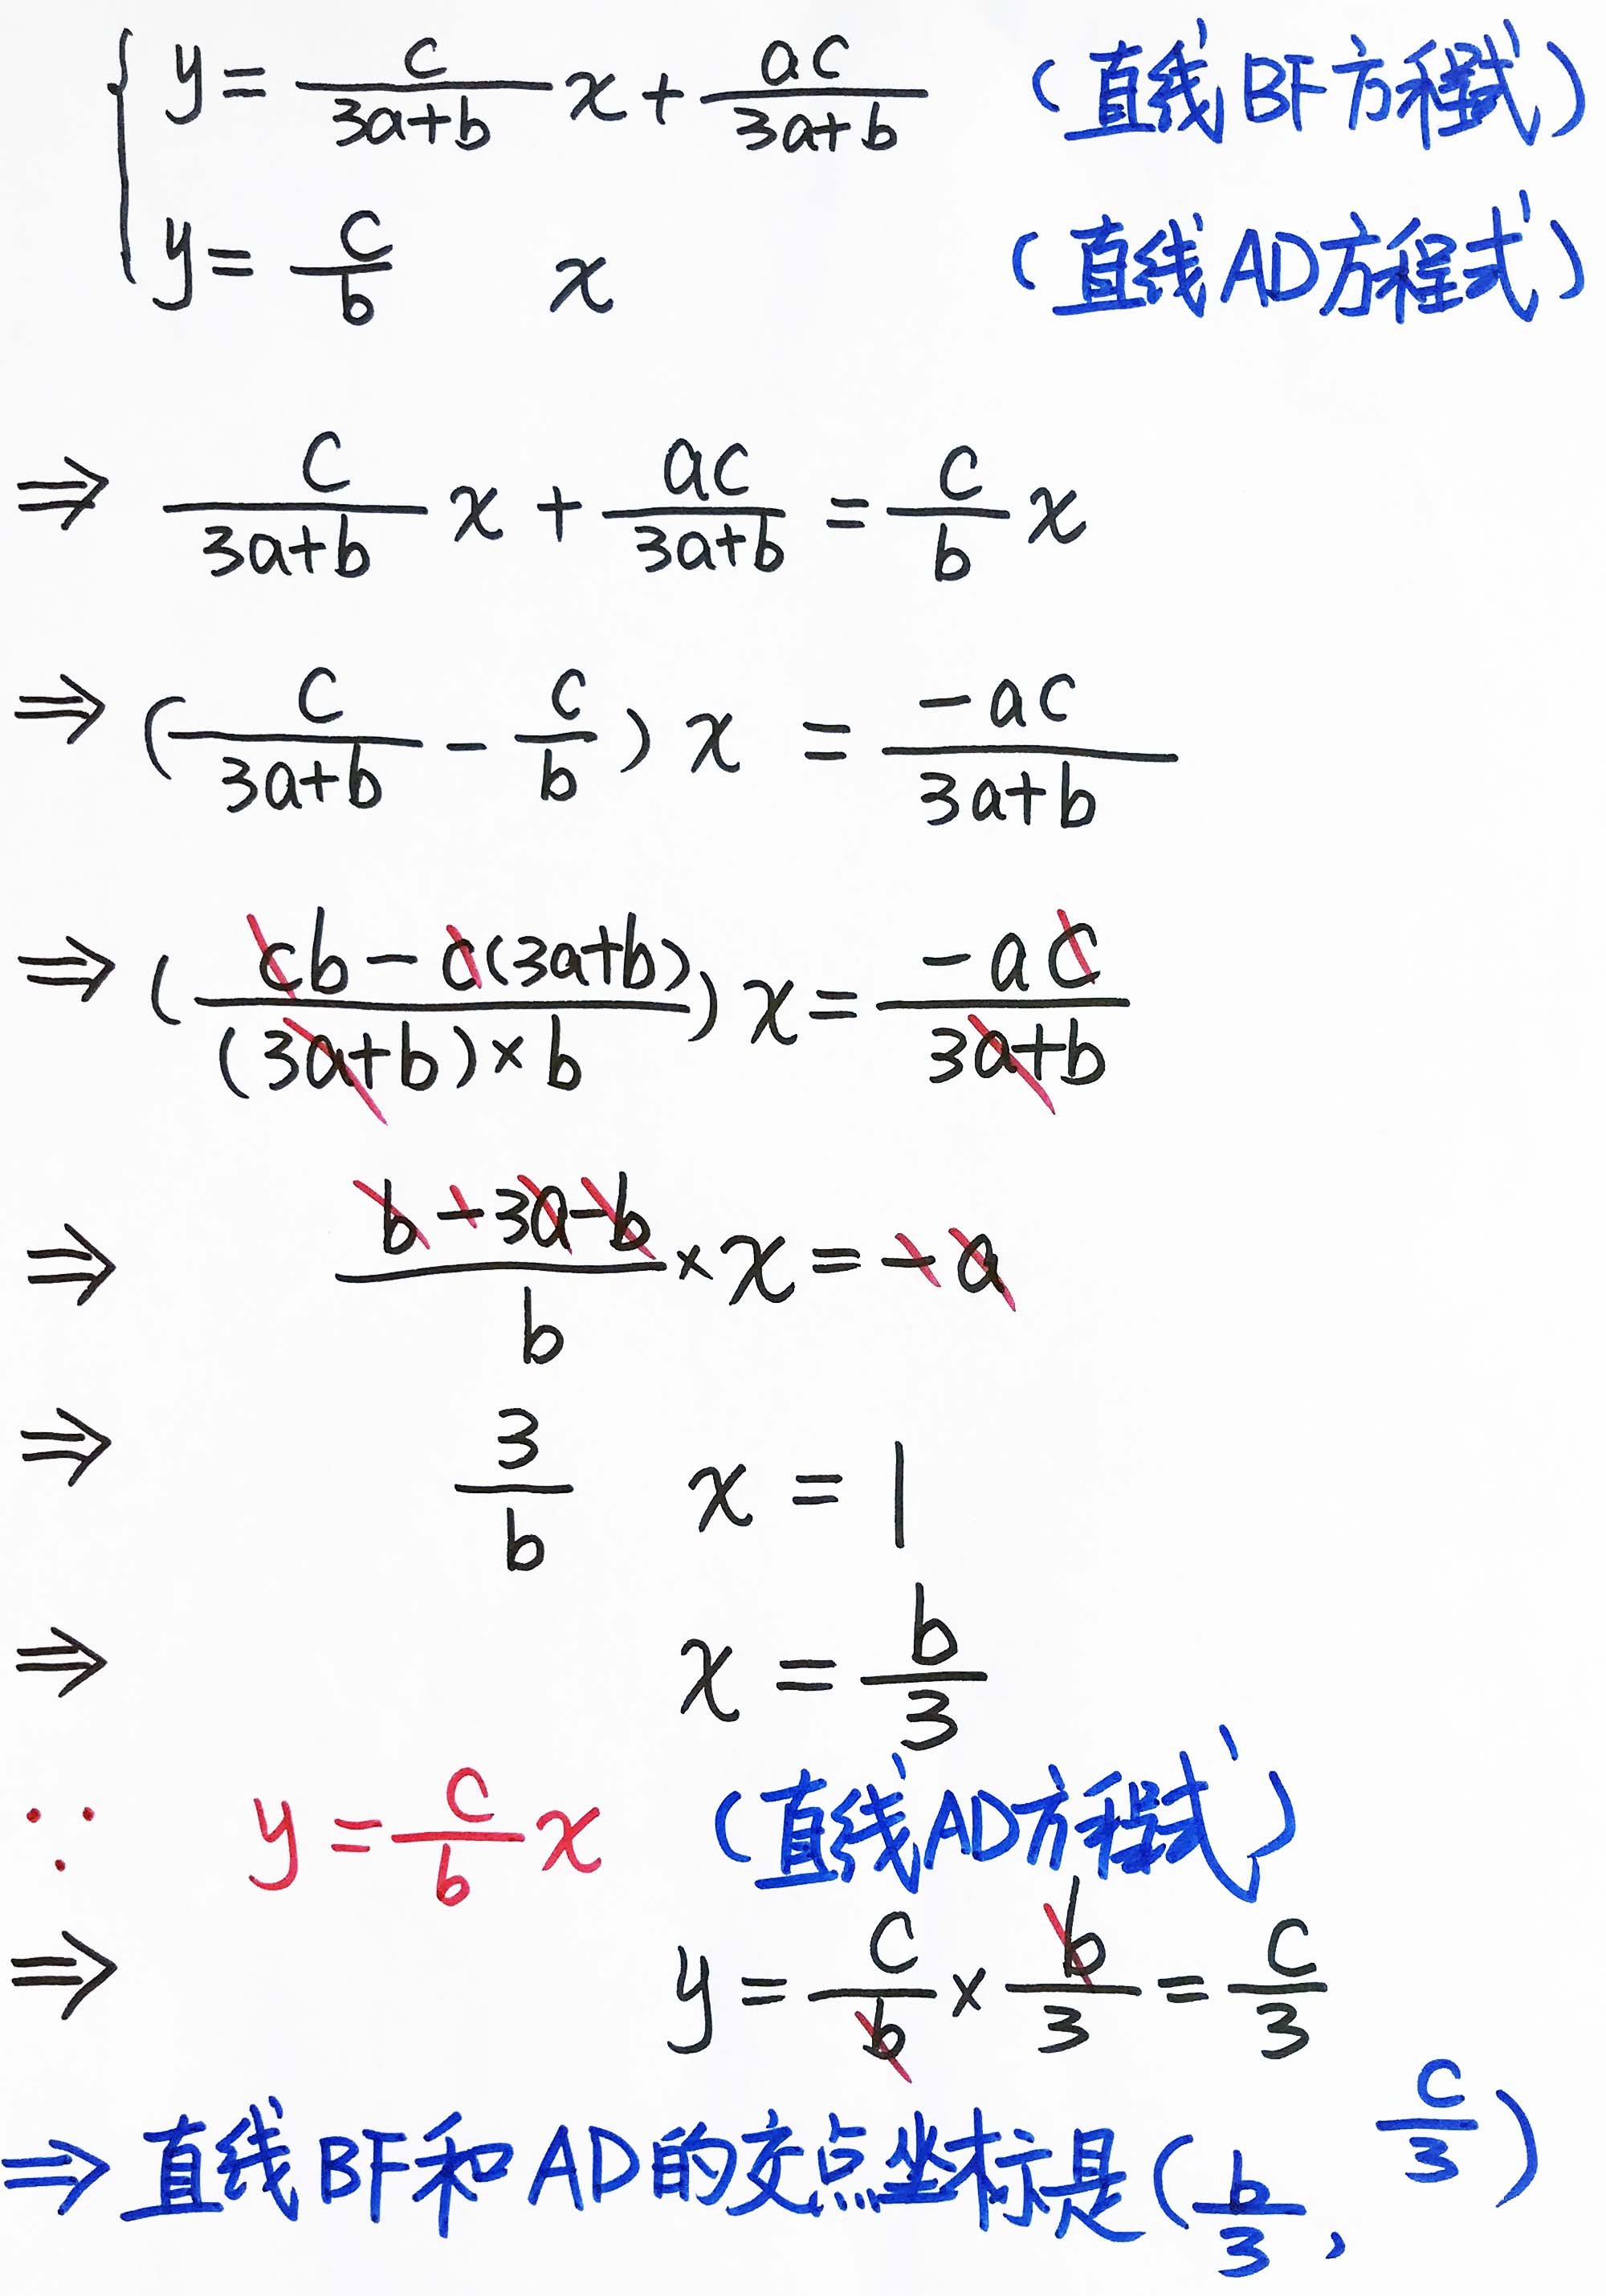 { y = c/(3a+b) x + ac/(3a+b) (直线BF方程式)
y = c/b x (直线AD方程式)
⇒ c/(3a+b) x + ac/(3a+b) = c/b x
⇒ (c/(3a+b) - c/b) x = -ac/(3a+b)
⇒ ((cb-c(3a+b))/((3a+b)×b)) x = -ac/(3a+b)
⇒ (b-3a-b)/b × x = -a
⇒ 3/b x = 1
⇒ x = b/3
∵ y = c/b x (直线AD方程式)
⇒ y = c/b × b/3 = c/3
⇒ 直线BF和AD的交点坐标是(b/3, c/3)